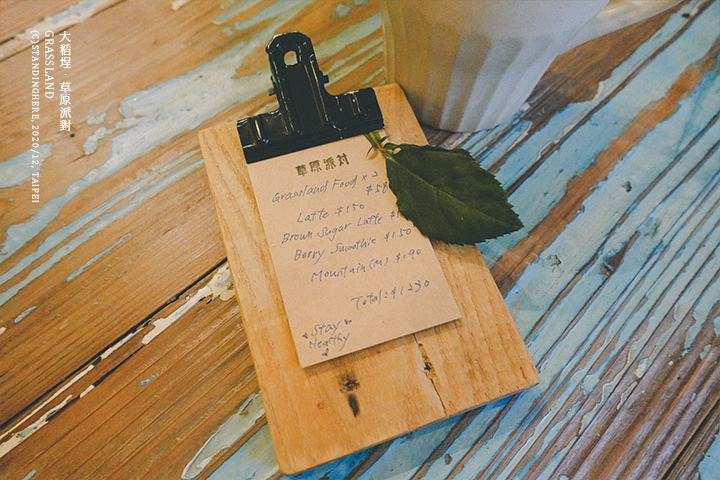 大稻埕．草原派對
GRASSLAND
(C)STANDINGHERB, 2020/12, TAIPEI
草原派对
Grassland Food x 2
$58
Latte $150
Brown Sugar Latte $1
Berry Smoothie $150
Mountain (M) $190
Total: $1230
Stay
Healthy